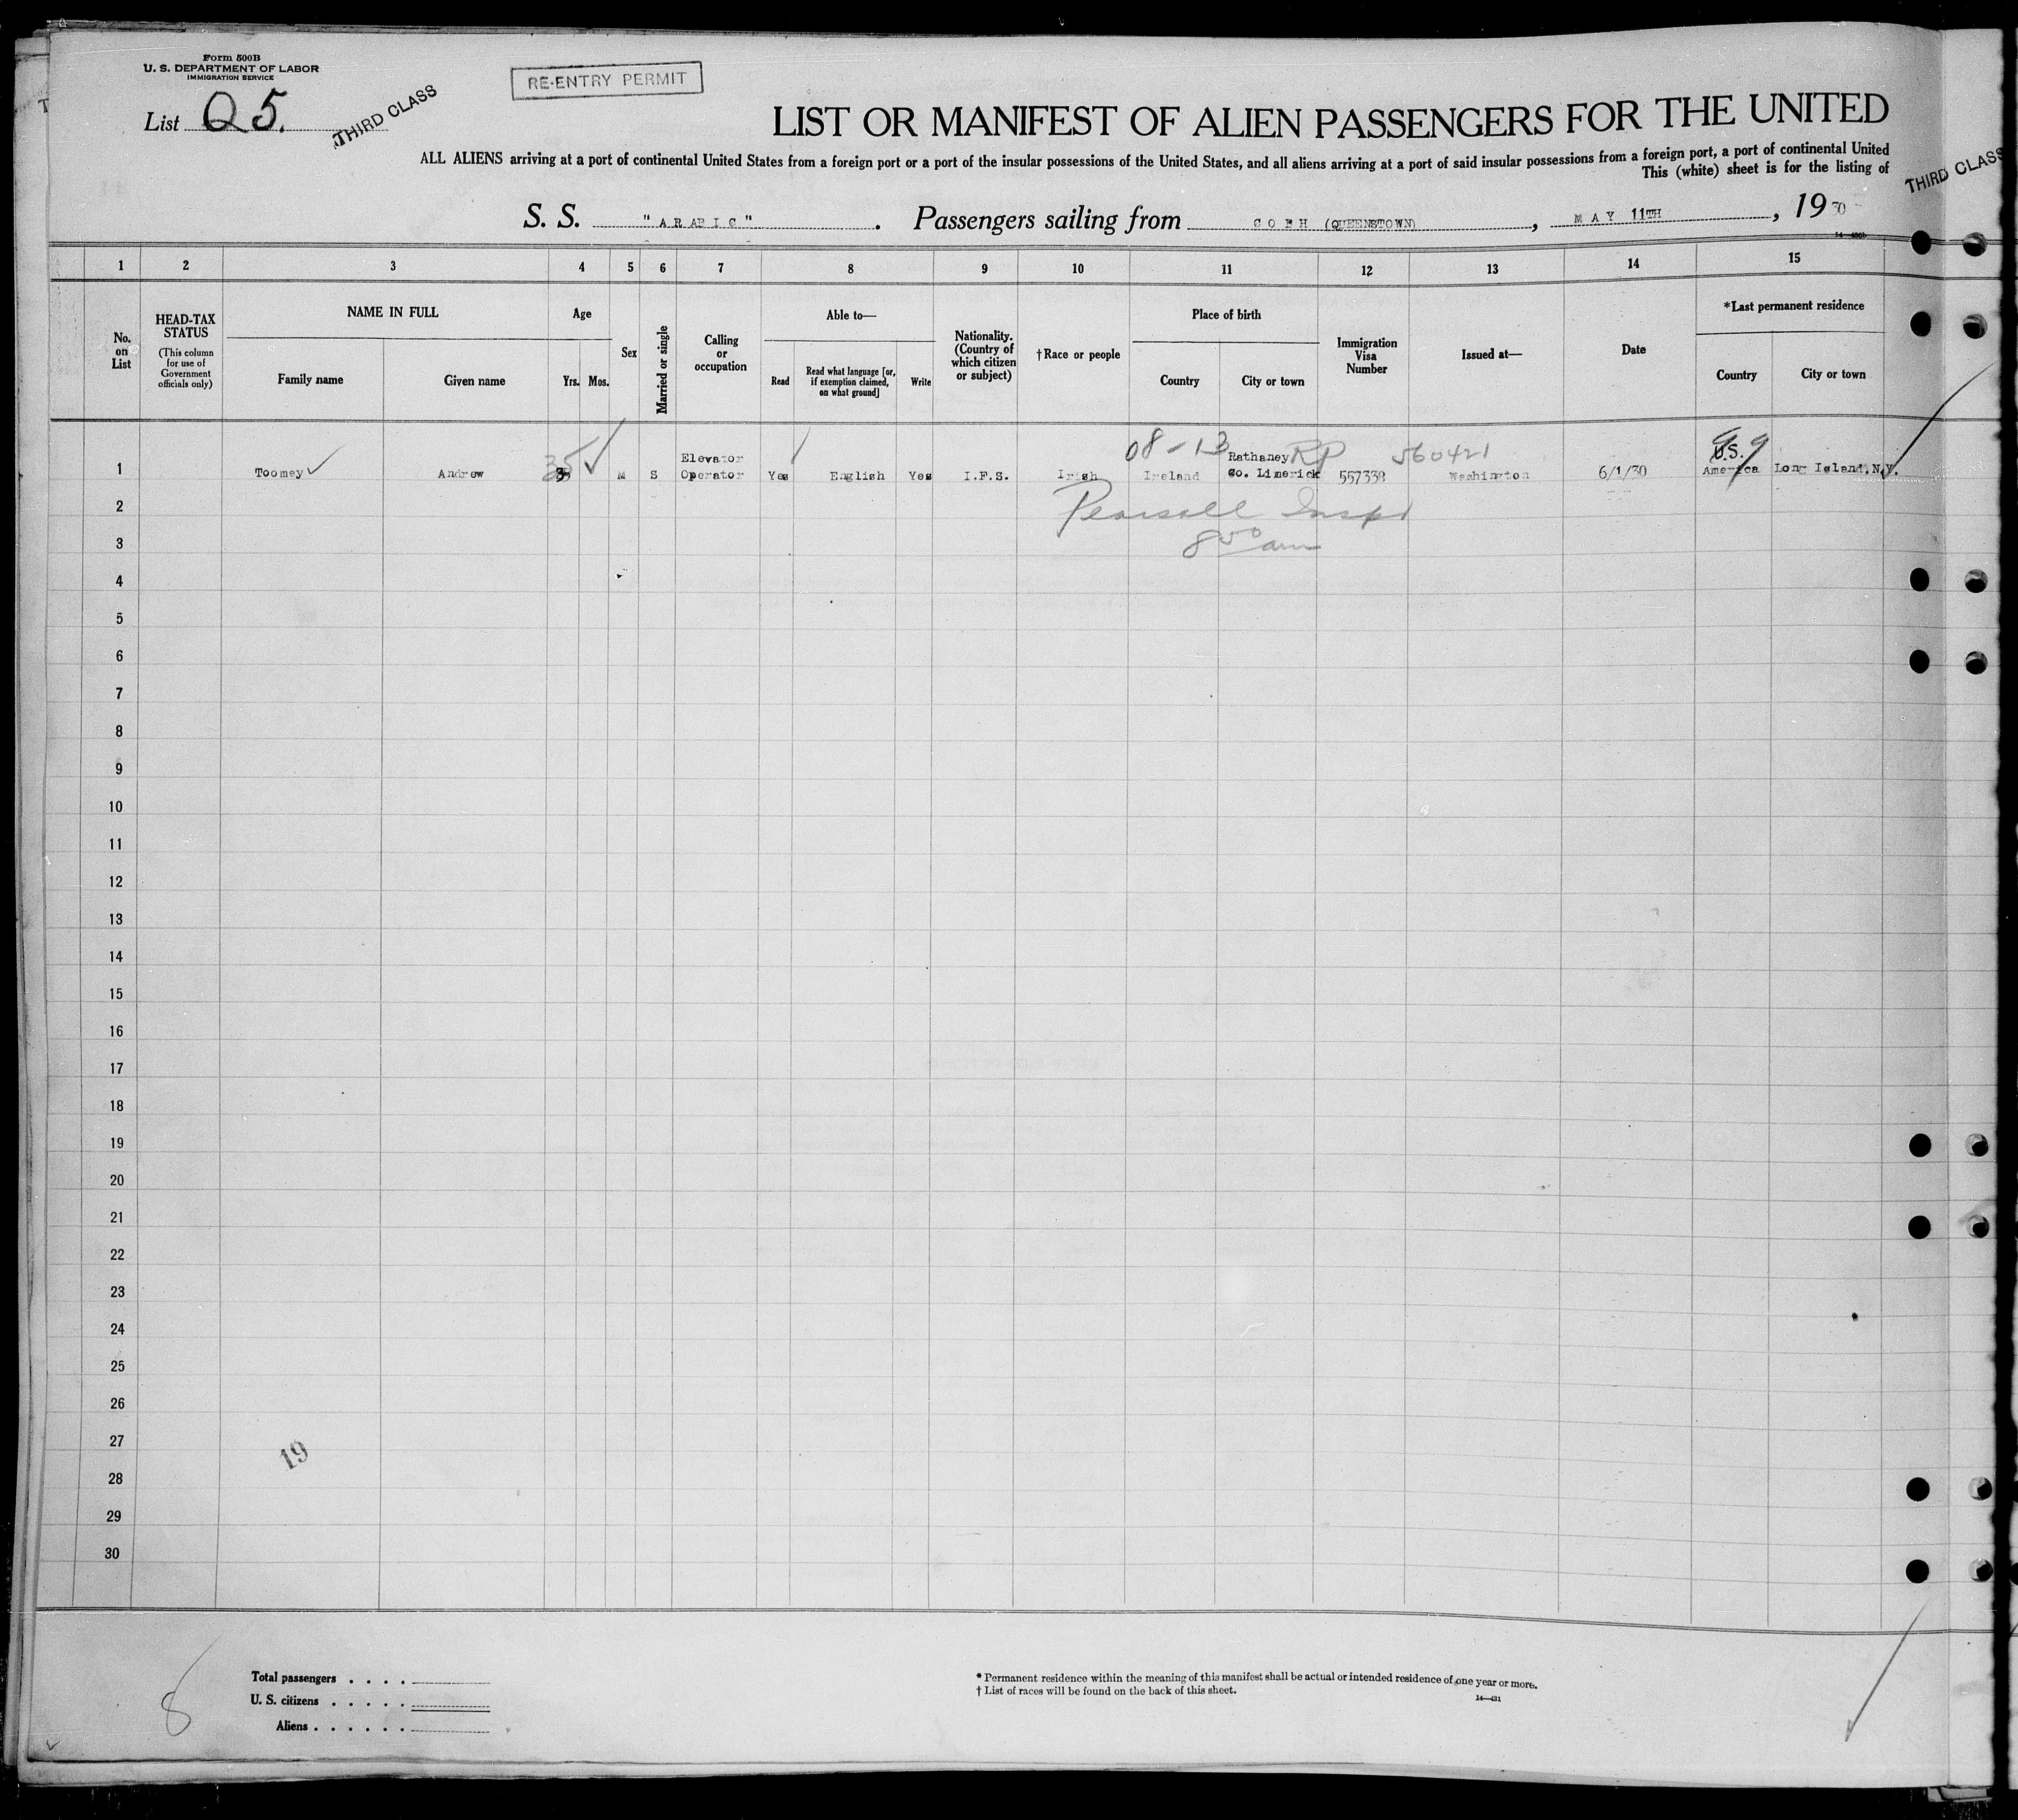 Form 500B
U. S. DEPARTMENT OF LABOR
IMMIGRATION SERVICE
RE-ENTRY PERMIT
List Q5.
THIRD CLASS
LIST OR MANIFEST OF ALIEN PASSENGERS FOR THE UNITED
ALL ALIENS arriving at a port of continental United States from a foreign port or a port of the insular possessions of the United States, and all aliens arriving at a port of said insular possessions from a foreign port, a port of continental United
This (white) sheet is for the listing of
THIRD CLASS
S. S. "ARABIC". Passengers sailing from COBH (QUEENSTOWN), MAY 11TH, 1930
1 2 3 4 5 6 7 8 9 10 11 12 13 14 15
No. on List
HEAD-TAX STATUS
(This column for use of Government officials only)
NAME IN FULL
Family name
Given name
Age
Yrs. Mos.
Sex
Married or single
Calling or occupation
Able to—
Read
Read what language [or, if exemption claimed, on what ground]
Write
Nationality. (Country of which citizen or subject)
†Race or people
Place of birth
Country
City or town
Immigration Visa Number
Issued at—
Date
*Last permanent residence
Country
City or town
08-13 RP 560421
1 Toomey Andrew 35 M S Elevator Operator Yes English Yes I.F.S. Irish Ireland Rathaney Co. Limerick 557338 Washington 6/1/30 U.S. America Long Island.N.Y.
2 Pearsall Inspt
3 8 50 am
4
5
6
7
8
9
10
11
12
13
14
15
16
17
18
19
20
21
22
23
24
25
26
27
19
28
29
30
8
Total passengers . . . .
U. S. citizens . . . . .
Aliens . . . . . .
* Permanent residence within the meaning of this manifest shall be actual or intended residence of one year or more.
† List of races will be found on the back of this sheet.